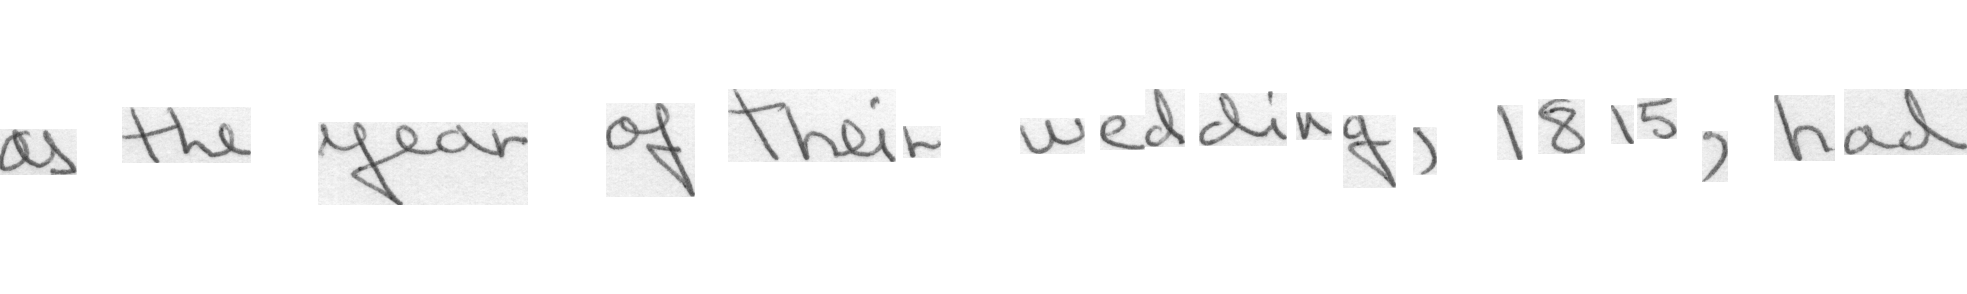 as the year of their wedding, 1815, had